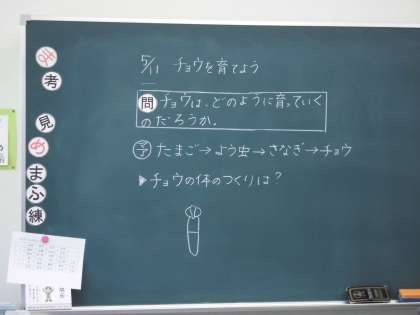 5/11 チョウを育てよう
問 チョウは、どのように育っていく
のだろうか。
予 たまご→よう虫→さなぎ→チョウ
▶チョウの体のつくりは？
考
見
め
ま
ふ
練